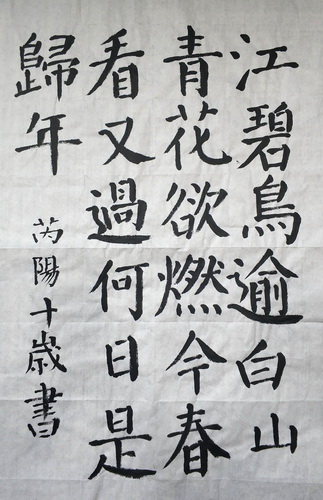 江碧鳥逾白山
青花欲燃今春
看又過何日是
歸年
芮陽十歲書